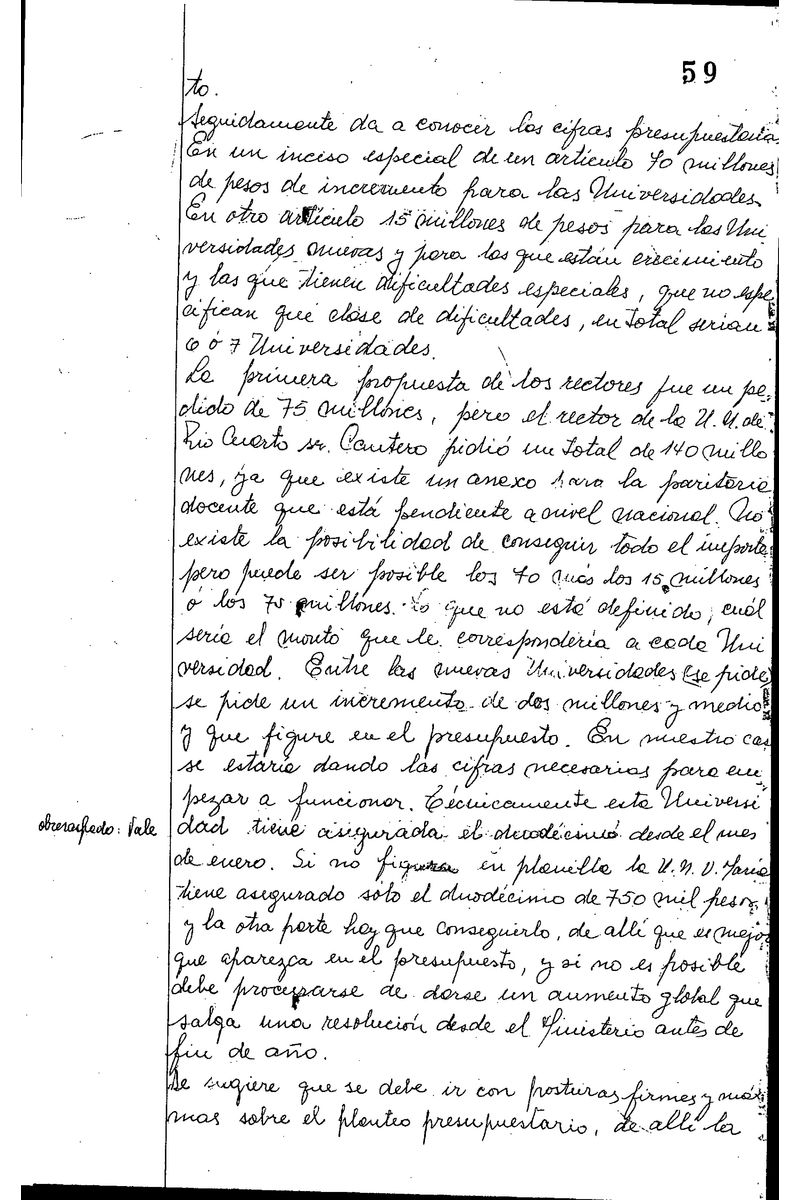 59
to.
Seguidamente da a conocer las cifras presupuestaria
En un inciso especial de un artículo 70 millones
de pesos de incremento para las Universidades
En otro artículo 15 millones de pesos para las Uni
versidades nuevas y para las que están crecimiento
y las que tienen dificultades especiales, que no espe
cifican que clase de dificultades, en total serian
6 ó 7 Universidades.
La primera propuesta de los rectores fue un pe-
dido de 75 millones, pero el rector de la U.N. de
Rio Cuarto sr. Cantero pidió un total de 140 millo
nes, ya que existe un anexo para la paritaria
docente que está pendiente a nivel nacional. No
existe la posibilidad de conseguir todo el importe
pero puede ser posible los 70 más los 15 millones
ó los 75 millones. Lo que no está definido, cuál
sería el monto que le correspondería a cada Uni
versidad. Entre las nuevas Universidades (se pide)
se pide un incremento de dos millones y medio
y que figure en el presupuesto. En nuestro cas
se estaría dando las cifras necesarias para em
pezar a funcionar. Técnicamente esta Universi
obreraspedo: Vale
dad tiene asegurada el duodécimo desde el mes
de enero. Si no figura en planilla la U.N.V. María
tiene asegurado sólo el duodécimo de 750 mil pesos
y la otra parte hay que conseguirlo, de allí que es mejor
que aparezca en el presupuesto, y si no es posible
debe procurarse de darse un aumento global que
salga una resolución desde el Ministerio antes de
fin de año.
Se sugiere que se debe ir con posturas firmes y máxi
mas sobre el planteo presupuestario, de allí la